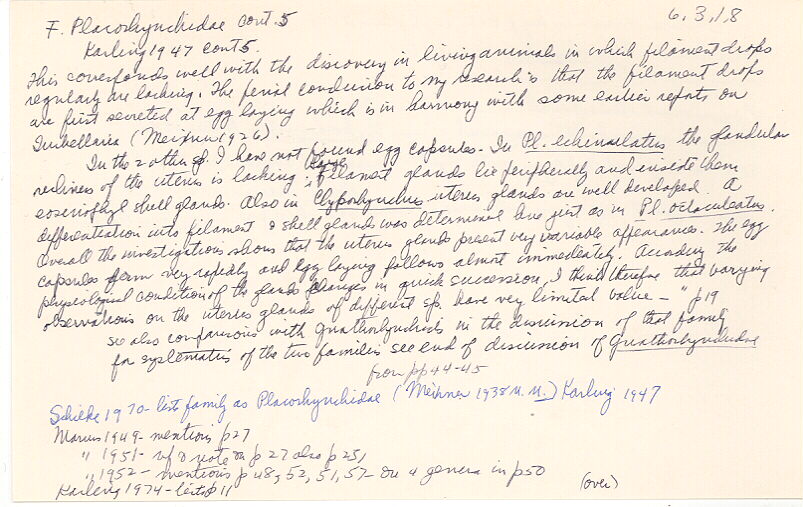 F. Placorhynchidae cont. 5
6.3.1.8
Karling 1947 cont 5.
This corresponds well with the discovery in living animals in which filament drops
regularly are lacking. The final conclusion to my research is that the filament drops
are first secreted at egg laying which is in harmony with some earlier reports on
Turbellaria (Meixner 1926).
In the 2 other sp. I have not found egg capsules. In Pl. echinulatus the glandular
richness of the uterus is lacking; large filament glands lie peripherally and inside them
eosinophyl shell glands. Also in Clyporhynchus uterus glands are well developed. A
differentiation into filament & shell glands was determined here just as in Pl. octaculeatus.
Overall the investigations shows that the uterus glands present very variable appearances. The egg
capsules form very rapidly and egg laying follows almost immediately. According the
physiological condition of the glands changes in quick succession, I think therefore that varying
observations on the uterus glands of different sp. have very limited value - " p 19
see also comparisons with Gnathorhynchids in the discussion of that family
for systematics of the two families see end of discussion of Gnathorhynchidae
from pp 44-45
Schilke 1970 - lists family as Placorhynchidae (Meixner 1938 M.M.) Karling 1947
Marcus 1949 - mentions p 27
" 1951 - note on p 27 also p 251
" 1952 - mentions p 48, 52, 51, 57 - on 4 genera in p 50
Karling 1974 - lists p 11
(over)